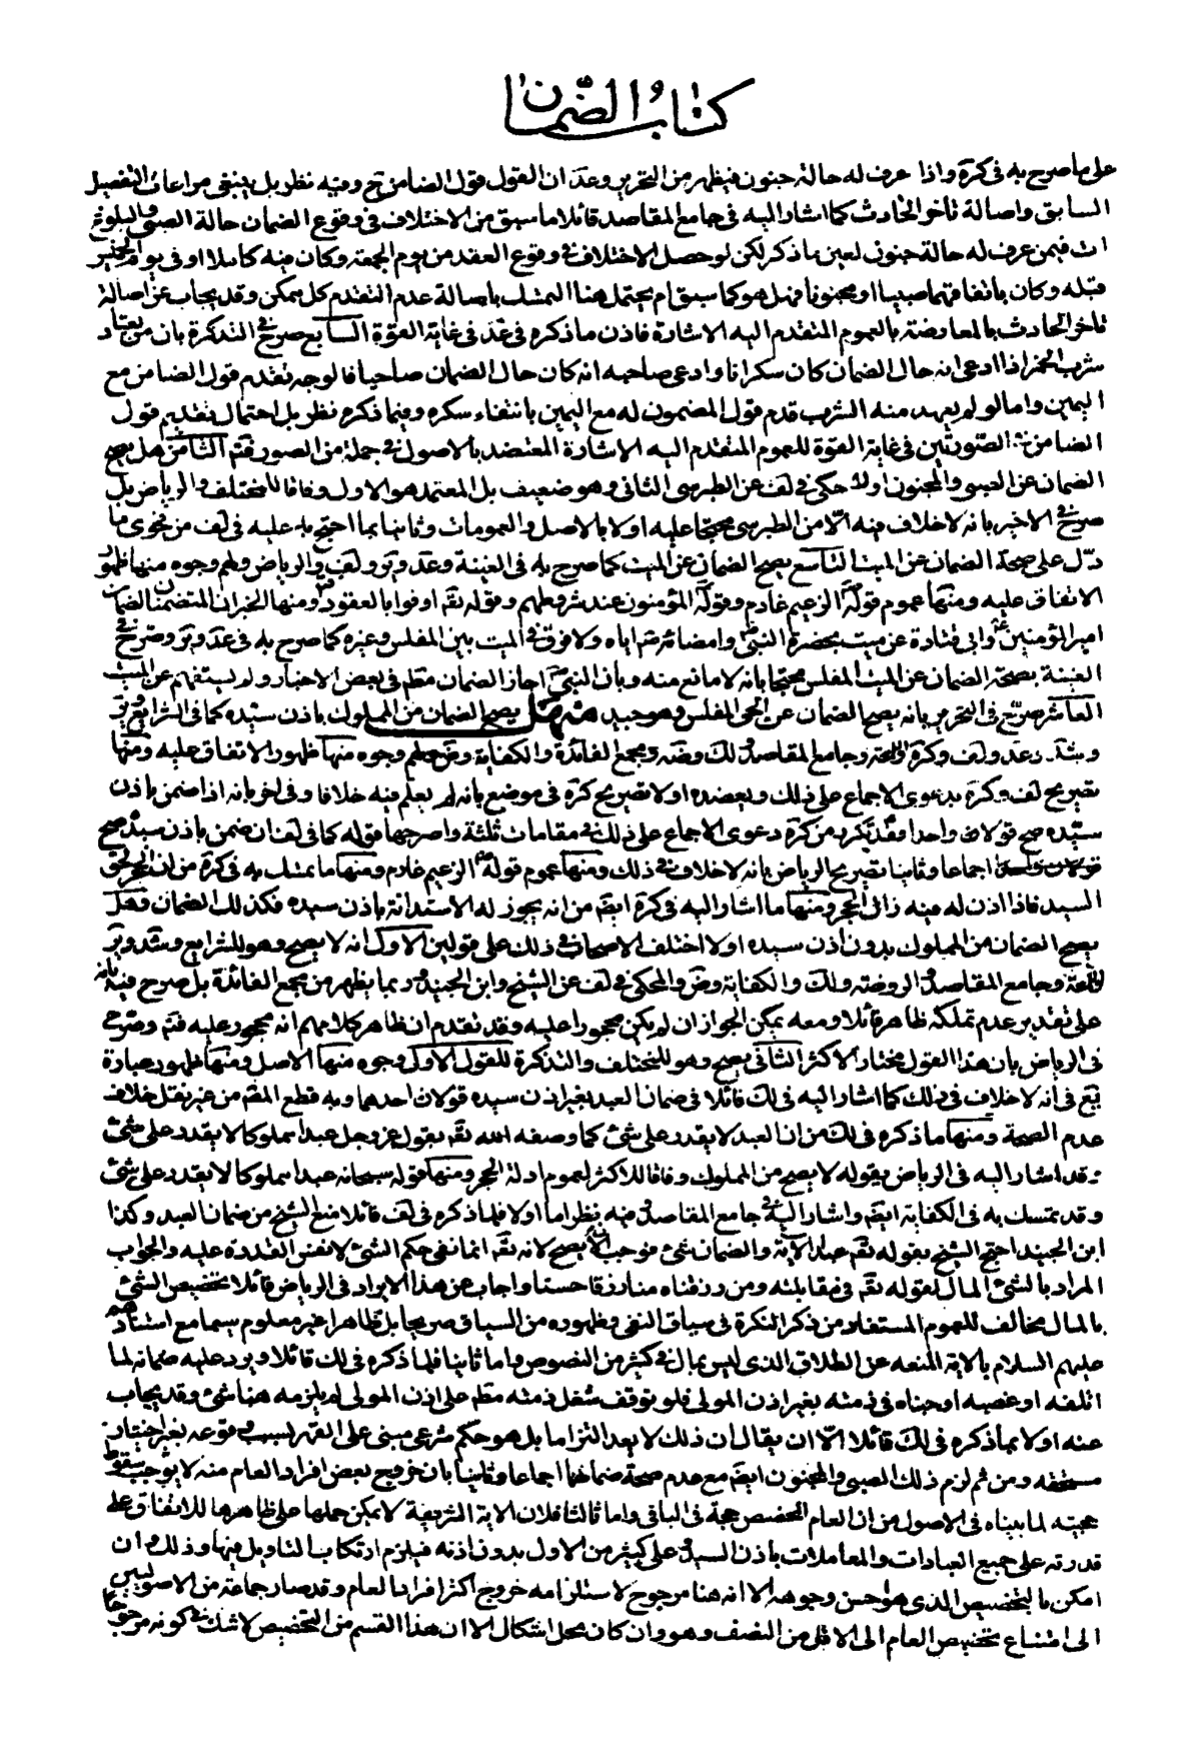 كتاب الضمان
على ما صرح به فى كرة واذا عرف له حالة جنون فيظهر من التحرير وعد ان القول قول الضامن ح وفيه نظر بل ينبغى مراعات التفصيل
السابق واصالة تاخر الحادث كما اشار اليه فى جامع المقاصد قائلا ما سبق من الاختلاف فى وقوع الضمان حالة الصبى والبلوغ
ات فيمن عرف له حالة جنون لعين ما ذكر لكن لو حصل الاختلاف فى وقوع العقد من يوم الجمعة وكان فيه كاملا او فى يوم الخميس
قبله وكان باتفاقهما صبيا او مجنونا فهل هو كما سبق ام يحتمل هنا التمسك باصالة عدم التقدم كل ممكن وقد يجاب عن اصالة
تاخر الحادث بالمعارضة بالعموم المتقدم اليه الاشارة فاذن ما ذكره فى عد فى غاية القوة السابع صرح فى التذكرة بان من يعتاد
شرب الخمر اذا ادعى انه حال الضمان كان سكرانا وادعى صاحبه انه كان حال الضمان صاحيا فالوجه تقدم قول الضامن مع
اليمين واما لو لم يعهد منه الشرب قدم قول المضمون له مع اليمين بانتفاء سكره وفيما ذكره نظر بل احتمال تقديم قول
الضامن فى الصورتين فى غاية القوة للعموم المتقدم اليه الاشارة المعتضد بالاصول فى جملة من الصور فتم الثامن هل يصح
الضمان عن الصبى والمجنون اولا حكى فى لف عن الطبرسى الثانى وهو ضعيف بل المعتمد هو الاول وفاقا للمختلف والرياض بل
صرح فى الاخير بانه لا خلاف فيه الا من الطبرسى محتجا عليه اولا بالاصل والعمومات وثانيا بما احتج به عليه فى لف من فحوى ما
دل على صحة الضمان عن الميت التاسع يصح الضمان عن الميت كما صرح به فى الغنية وعد وير ولف والرياض ولهم وجوه منها ظهور
الاتفاق عليه ومنها عموم قوله الزعيم غارم وقوله المؤمنون عند شروطهم وقوله تعم اوفوا بالعقود ومنها الخبران المتضمنان لضمان
امير المؤمنين وابى قتادة عن ميت بحضرة النبى وامضائه ص اياه ولا فرق فى الميت بين المفلس وغيره كما صرح به فى عد وير وصرح فى
الغنية بصحة الضمان عن الميت المفلس محتجا بانه لا مانع منه وبان النبى ص اجاز الضمان مطم فى بعض الاخبار ولم يستفهم عن الميت
العاشر صرح فى التحرير بانه يصح الضمان عن الحى المفلس وهو جيد منهل يصح الضمان من المملوك باذن سيده كما فى الشرايع وير
وشد وعد ولف وكرة واللمعة وجامع المقاصد ولك وضه ومجمع الفائدة والكفاية وض ولهم وجوه منها ظهور الاتفاق عليه ومنها
تصريح لف وكرة بدعوى الاجماع على ذلك ويعضده اولا تصريح كرة فى موضع بانه لم يعلم فيه خلافا وفى اخر بانه اذا ضمن باذن
سيده صح قولا واحدا وقد تكرر من كرة دعوى الاجماع على ذلك فى مقامات ثلثة واصرحها قوله كما فى لف ان ضمن باذن سيده صح
قولا واحدا اجماعا وثانيا تصريح الرياض بانه لا خلاف فى ذلك ومنها عموم قوله الزعيم غارم ومنها ما تمسك به فى كرة من ان الحجر لحق
السيد فاذا اذن له فيه زال الحجر ومنها ما اشار اليه فى كرة ايضم من انه يجوز له الاستدانة باذن سيده فكذلك الضمان وهل
يصح الضمان من المملوك بدون اذن سيده اولا اختلف الاصحاب فى ذلك على قولين الاول انه لا يصح وهو للشرايع وشد وير
واللمعة وجامع المقاصد والروضة ولك والكفاية وض والمحكى فى لف عن الشيخ وابن الجنيد وربما يظهر من مجمع الفائدة بل صرح فيه بانه
على تقدير عدم تملكه ظاهر قائلا ومعه يمكن الجواز ان لم يكن محجورا عليه وقد تقدم ان ظاهر كلامهم انه محجور عليه فتم وصرح
فى الرياض بان هذا القول مختار الاكثر الثانى يصح وهو للمختلف والتذكرة للقول الاول وجوه منها الاصل ومنها ظهور عبارة
يع فى انه لا خلاف فى ذلك كما اشار اليه فى لك قائلا فى ضمان العبد بغير اذن سيده قولان احدهما وبه قطع المصم من غير نقل خلاف
عدم الصحة ومنها ما ذكره فى لك من ان العبد لا يقدر على شئ كما وصفه الله تعم بقوله عز وجل عبدا مملوكا لا يقدر على شئ
وقد اشار اليه فى الرياض بقوله لا يصح من المملوك وفاقا للاكثر لعموم ادلة الحجر ومنها قوله سبحانه عبدا مملوكا لا يقدر على شئ
وقد تمسك به فى الكفاية ايضم واشار اليه فى جامع المقاصد وفيه نظر اما اولا فلما ذكره فى لف قائلا منع الشيخ من ضمان العبد وكذا
ابن الجنيد احتج الشيخ بقوله تعم عبدا الاية والضمان شئ فوجب ان لا يصح لانه تعم انما نفى حكم الشئ لا نفس القدرة عليه والجواب
المراد بالشئ المال لقوله تعم فى مقابلته ومن رزقناه منا رزقا حسنا واجاب عن هذا الايراد فى الرياض قائلا تخصيص الشئ
بالمال مخالف للعموم المستفاد من ذكر النكرة فى سياق النفى وظهوره من السياق صريحا بل ظاهرا غير معلوم سيما مع استنادهم
عليهم السلام بالاية لمنعه عن الطلاق الذى ليس بمال فى كثير من النصوص واما ثانيا فلما ذكره فى لك قائلا ويرد عليه ضمانه لما
اتلفه او غصبه او جناه فى ذمته بغير اذن المولى فلو توقف شغل ذمته مطم على اذن المولى لم يلزمه هنا شئ وقد يجاب
عنه اولا بما ذكره فى لك قائلا الا ان يقال ان ذلك لا يعد التزاما بل هو حكم شرعى مبنى على القهر لسبب وقوعه بغير اختيار
مستحقه ومن ثم لزم ذلك الصبى والمجنون ايضم مع عدم صحة ضمانهما اجماعا وثانيا بان خروج بعض افراد العام منه لا يوجب سقوط
حجيته لما بيناه فى الاصول من ان العام المخصص حجة فى الباقى واما ثالثا فلان الاية الشريفة لا يمكن حملها على ظاهرها للاتفاق على
قدرته على جميع العبادات والمعاملات باذن السيد وعلى كثير من الاول بدون اذنه فيلزم ارتكاب التاويل فيها وذلك وان
امكن بالتخصيص الذى هو احسن وجوهه الا انه هنا مرجوح لاستلزامه خروج اكثر افراد العام وقد صار جماعة من الاصوليين
الى امتناع تخصيص العام الى الاقل من النصف وهو وان كان محل اشكال الا ان هذا القسم من التخصيص لا شك فى كونه مرجوحا